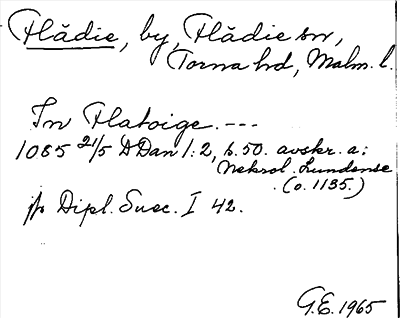 Flädie, by, Flädie sn,
Torna hd, Malm. l.
In Flatoige. ---
1085 21/5 DDan 1:2, s. 50. avskr. a:
Nekrol. Lundense
(o. 1135.)
jfr Dipl. Suec. I 42.
G.E. 1965